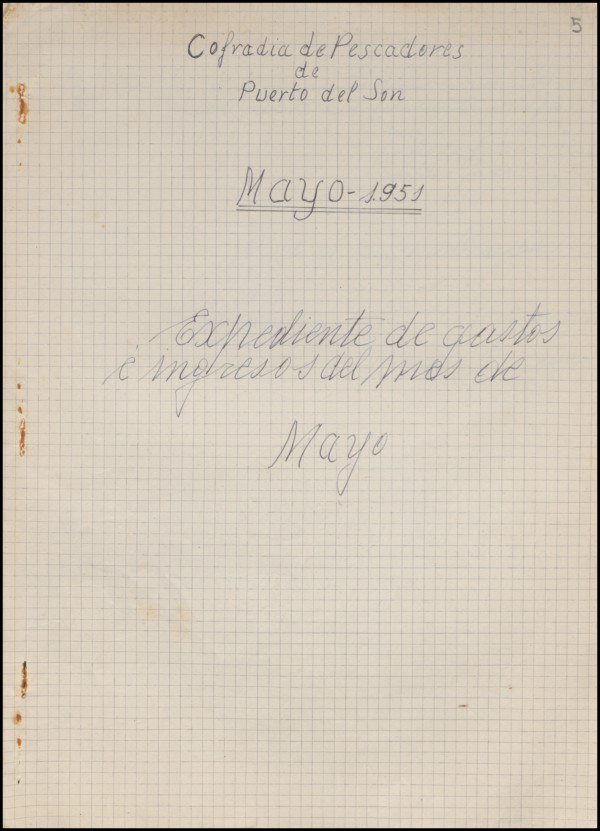 5
Cofradia de Pescadores
de
Puerto del Son
Mayo-1.951
Expediente de gastos
é ingresos del mes de
Mayo